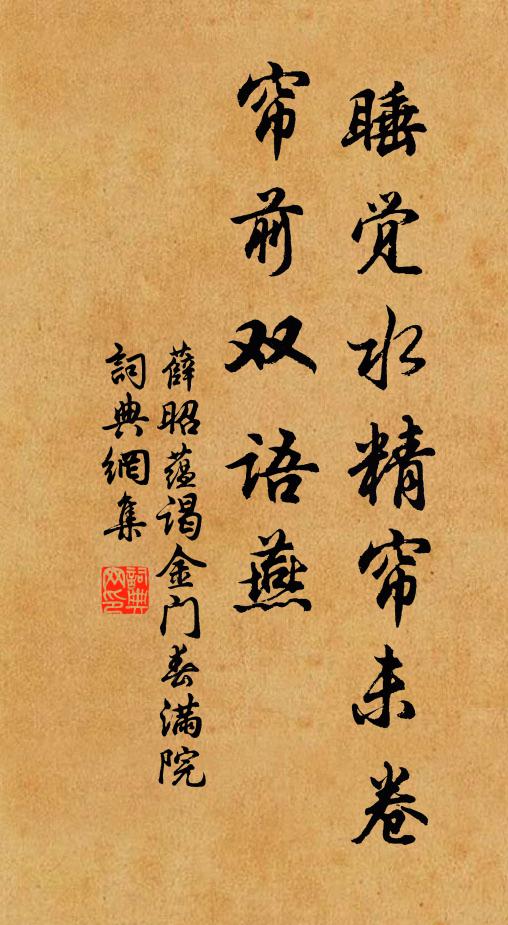 睡觉水精帘未卷
帘前双语燕
薛昭蕴谒金门春满院
詞典網集
詞典网印